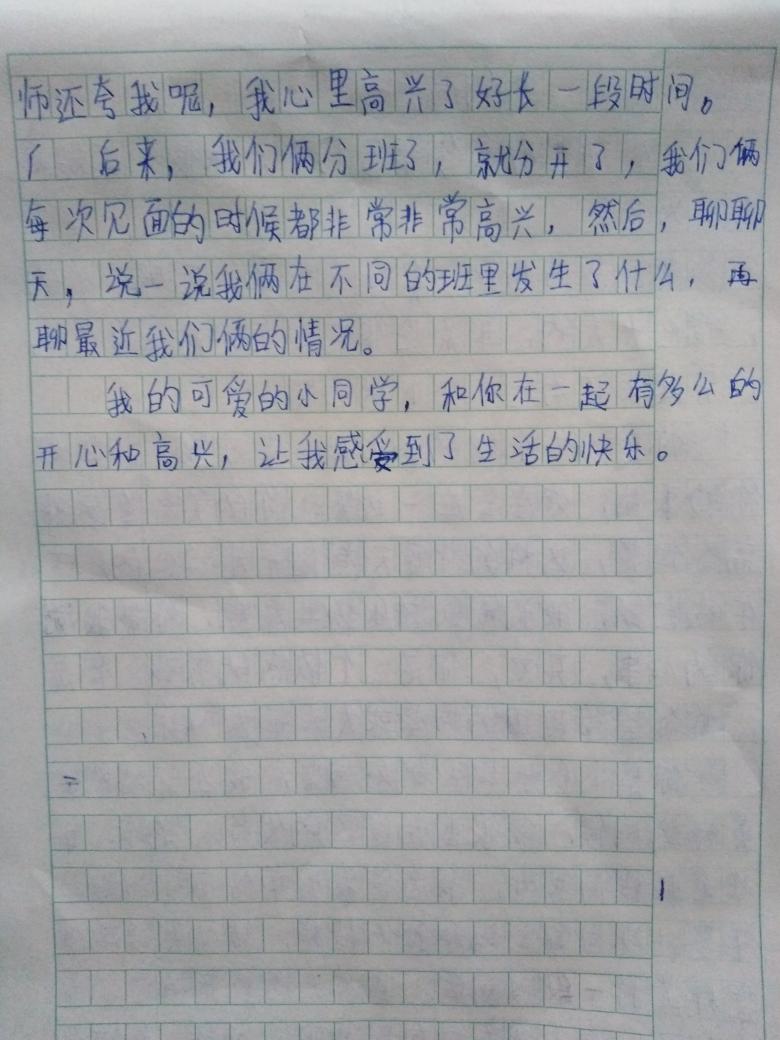 师还夸我呢，我心里高兴了好长一段时间。
后来，我们俩分班了，就分开了，我们俩
每次见面的时候都非常非常高兴，然后，聊聊
天，说一说我俩在不同的班里发生了什么，再
聊最近我们俩的情况。
我的可爱的小同学，和你在一起有多么的
开心和高兴，让我感受到了生活的快乐。